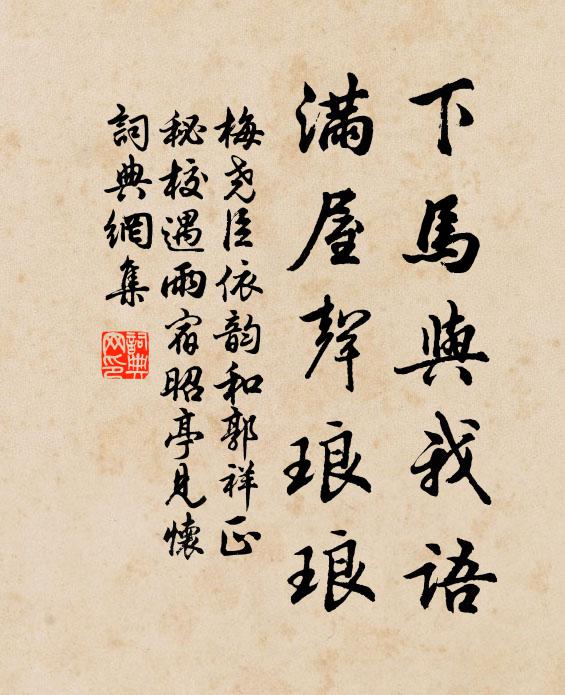 下馬與我語
滿屋聲琅琅
梅堯臣依韵和郭祥正
秘校遇雨宿昭亭見懷
詞典網集
詞典
网印